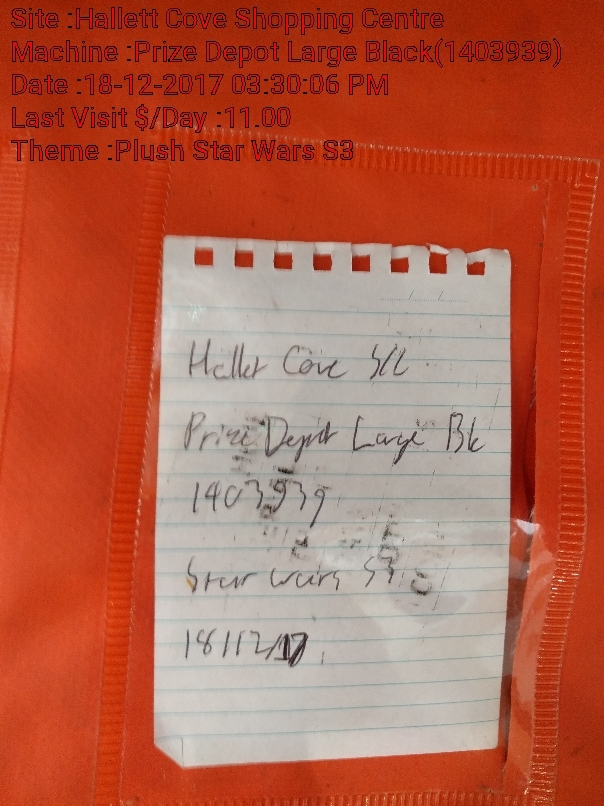 Site :Hallett Cove Shopping Centre
Machine :Prize Depot Large Black(1403939)
Date :18-12-2017 03:30:06 PM
Last Visit $/Day :11.00
Theme :Plush Star Wars S3
Hallet Cove S/C
Prize Depot Large Blk
1403939
Star wars S3
18/12/17